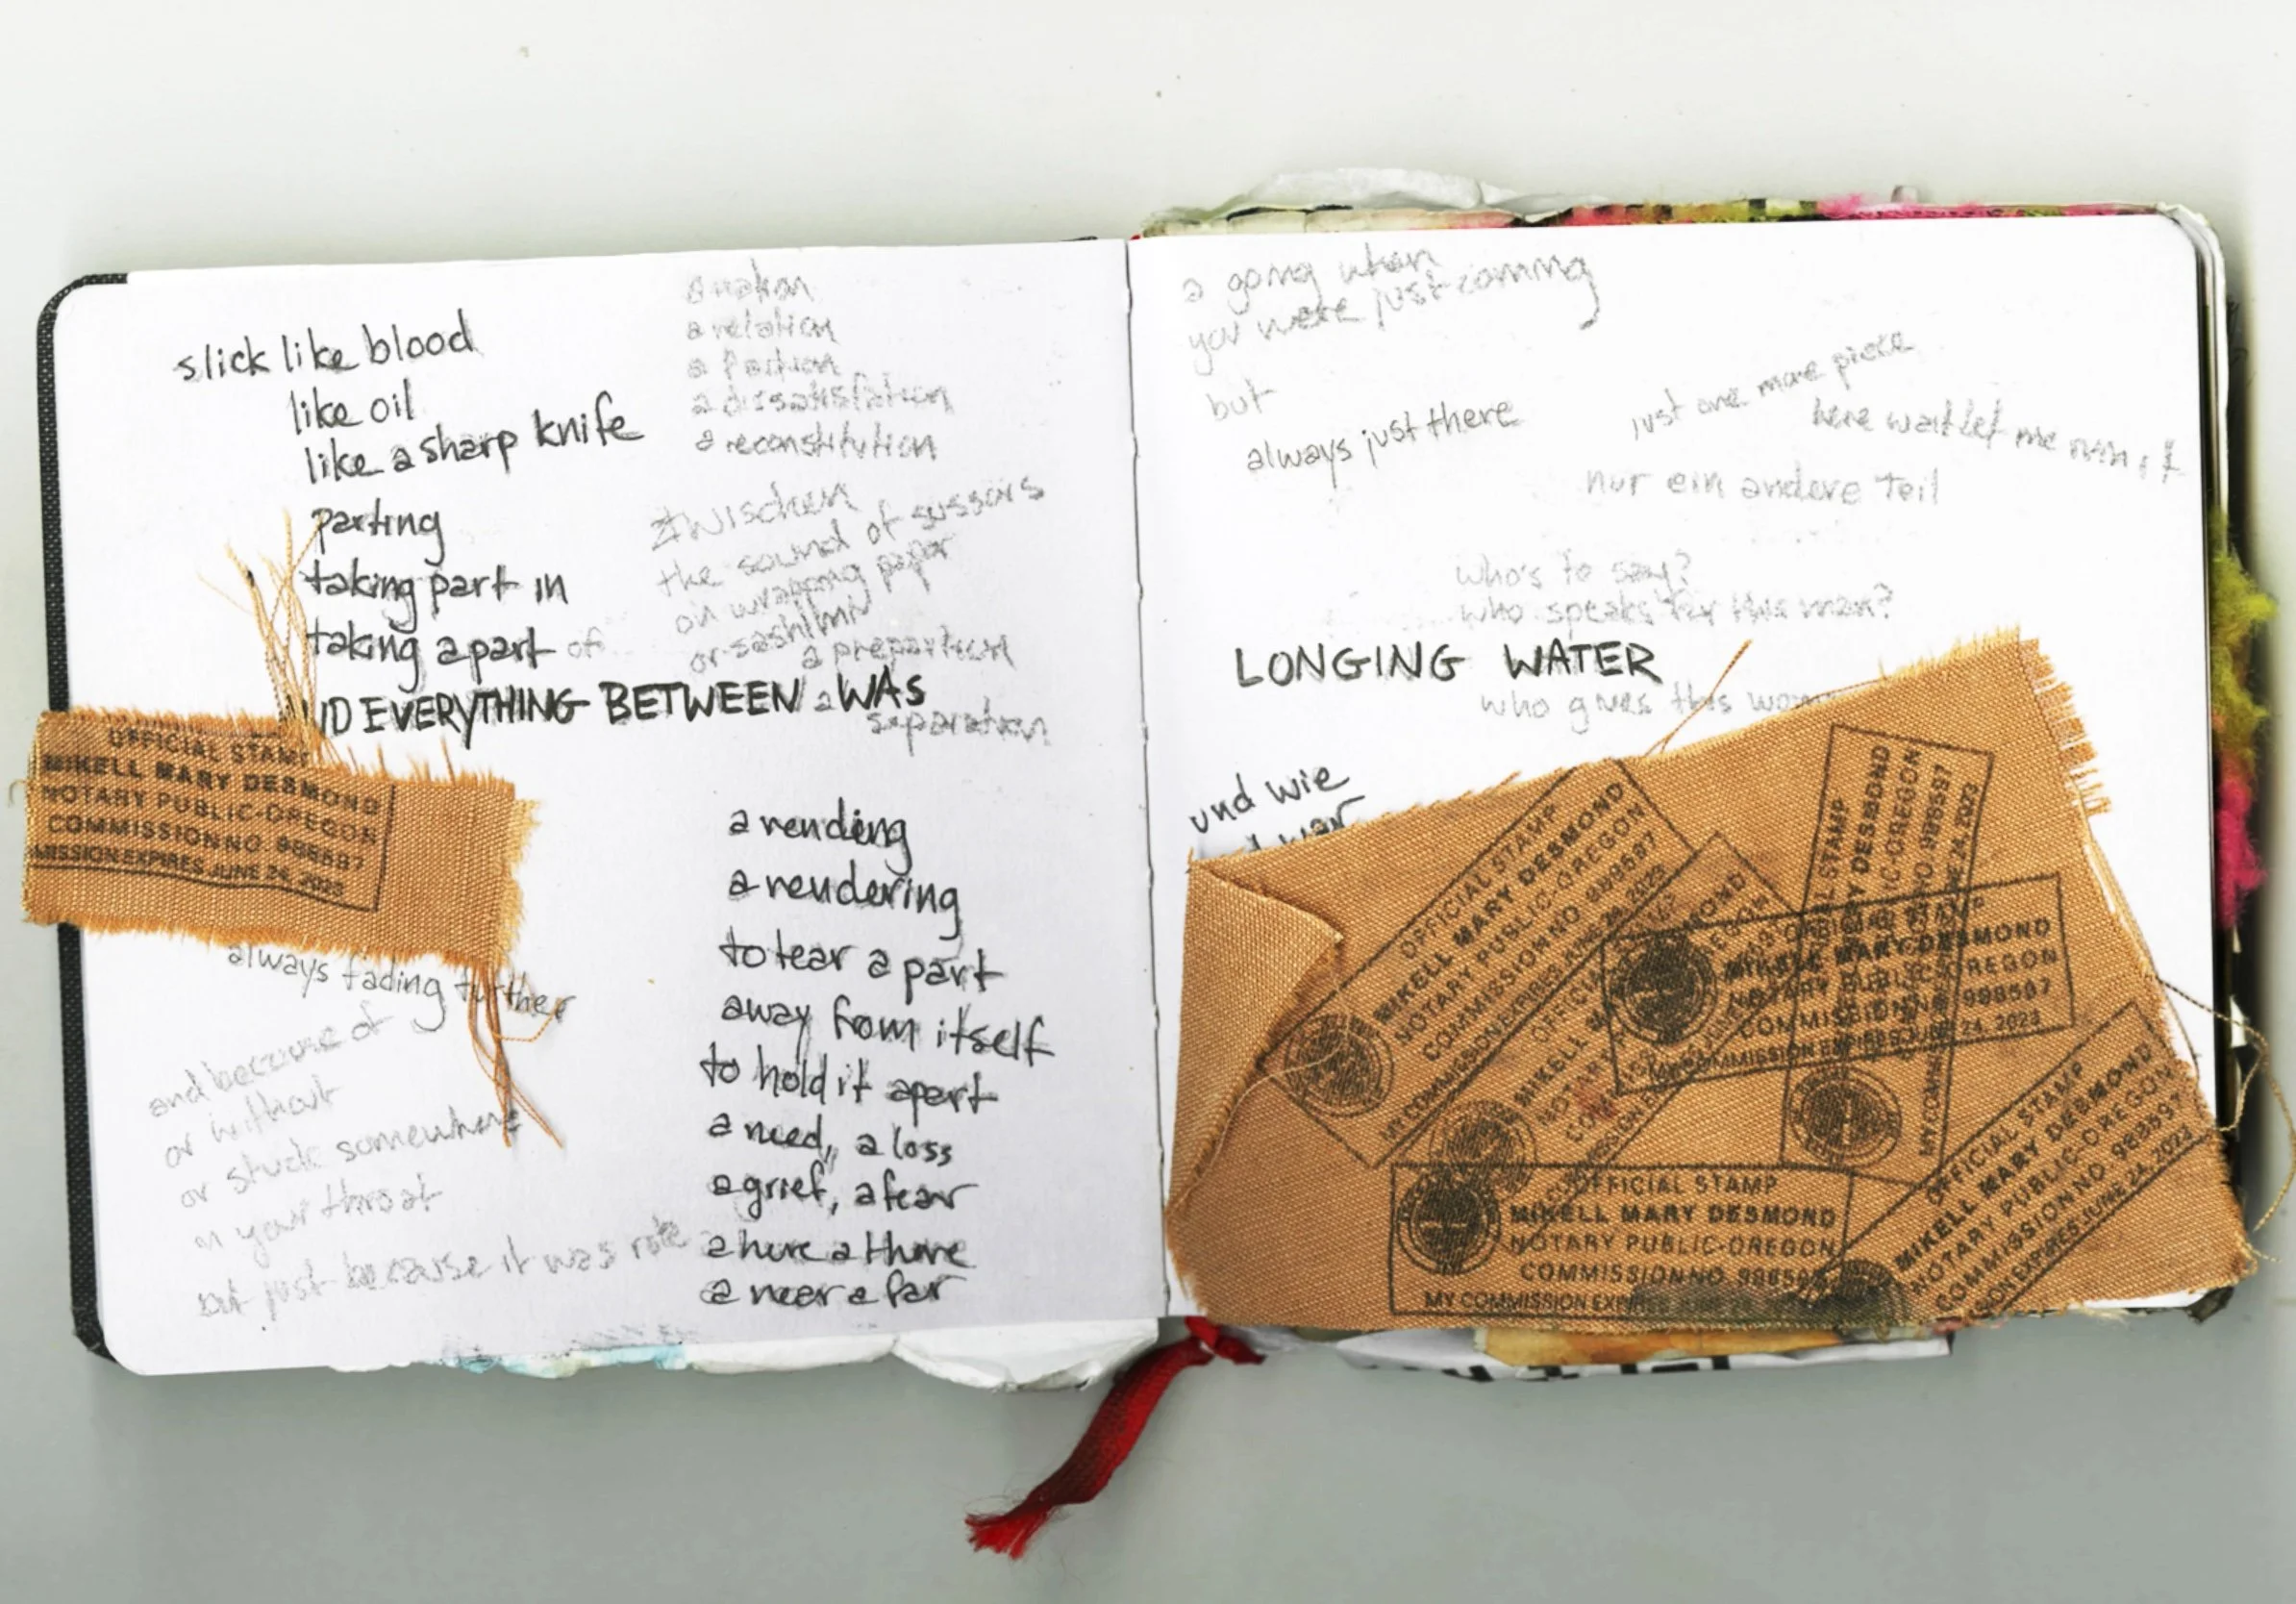 slick like blood
like oil
like a sharp knife
parting
taking part in
taking a part of
ID EVERYTHING BETWEEN WAS
a relation
a portion
a dissatisfation
a reconstitution
zwischen
the sound of sussors
on wrapping paper
or sashimi
a prepartion
a separation
OFFICIAL STAMP
MIKELL MARY DESMOND
NOTARY PUBLIC-OREGON
COMMISSION NO. 988587
MISSION EXPIRES JUNE 24, 2023
always fading further
and because of
or without
or stuck somewhere
in your throat
but just because it was
a rending
a rendering
to tear a part
away from itself
to hold it apart
a need, a loss
a grief, a fear
a here a there
a near a far
a going when
you were just coming
but
always just there
just one more piece
here wait let me
nur ein andere Teil
who's to say?
who speaks for this man?
LONGING WATER
who gives this
und wie
war
OFFICIAL STAMP
MIKELL MARY DESMOND
NOTARY PUBLIC-OREGON
COMMISSION NO. 988587
MY COMMISSION EXPIRES JUNE 24, 2023
STAMP
DESMOND
IC-OREGON
NO. 988587
24, 2023
MY COMMIS
MIKELL MARY DESMOND
NOTARY PUBLIC-OREGON
COMMISSION NO. 988587
MY COMMISSION EXPIRES JUNE 24, 2023
OFFICIA
MIKELL
NOTARY
OFFICIAL STAMP
MIKELL MARY DESMOND
NOTARY PUBLIC-OREGON
COMMISSION NO. 98858
MY COMMISSION EXPIRES
OFFICIAL STAMP
MIKELL MARY DESMOND
NOTARY PUBLIC-OREGON
COMMISSION NO. 988587
SION EXPIRES JUNE 24, 2023